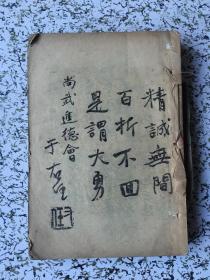 精誠無間
百折不回
是謂大勇
尚武進德會
于右任